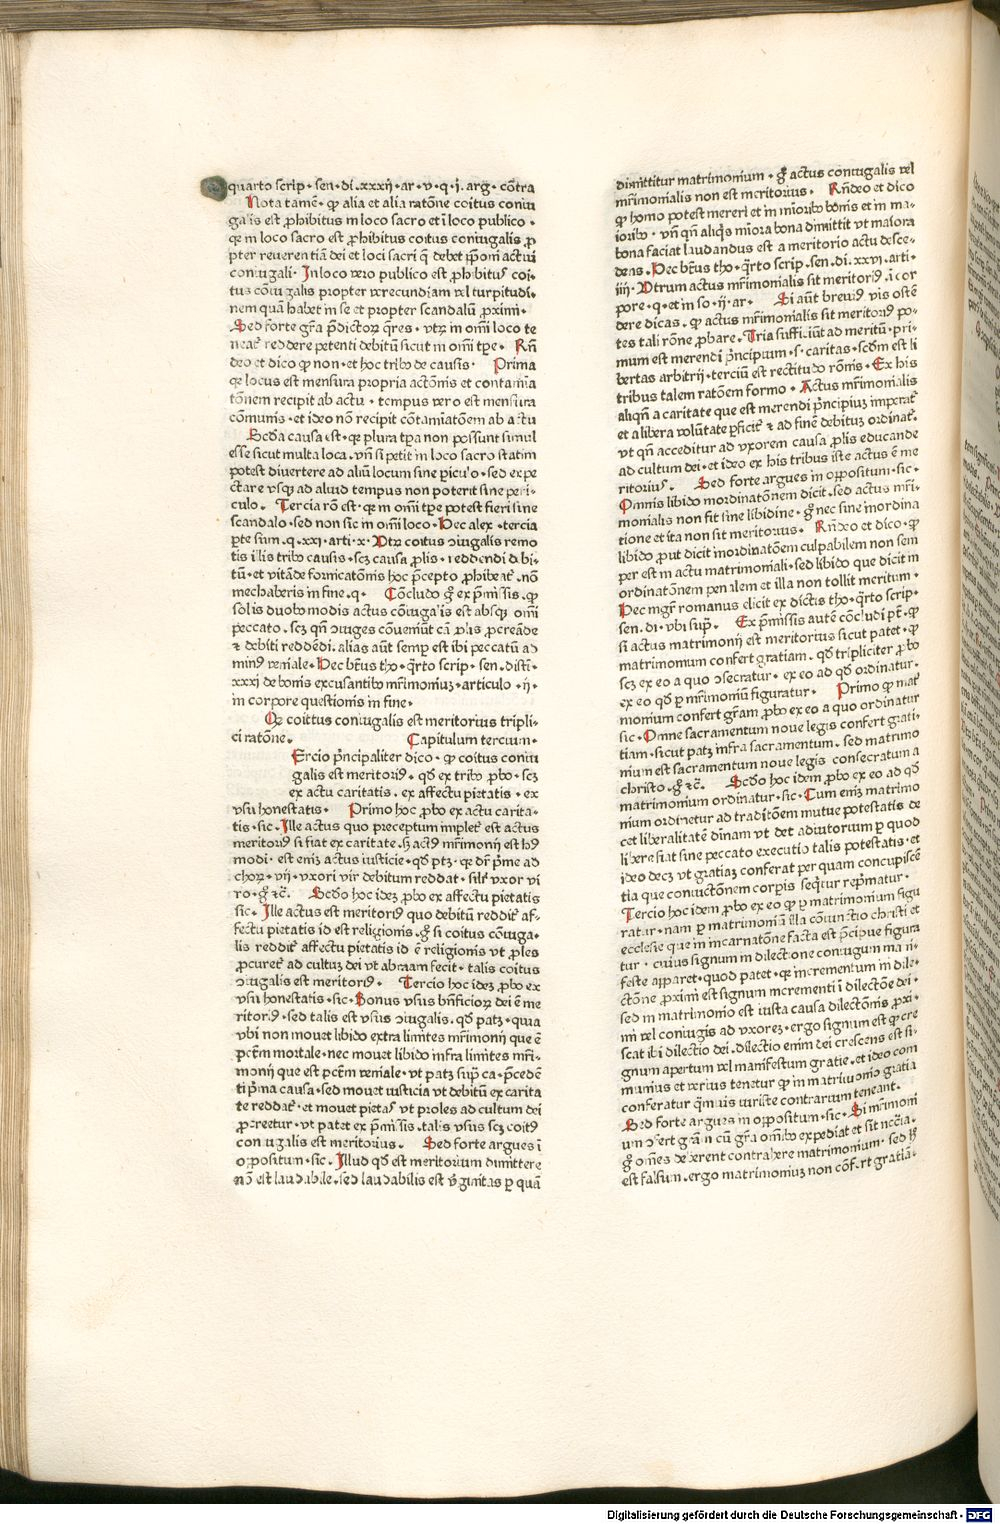 quarto scrip · sen · di · xxxij · ar · v · q · j · arg · cõtra
Nota tamẽ · qp alia et alia ratõne coitus coniu
galis est ꝓhibitus in loco sacro et ĩ loco publico ·
qe in loco sacro est ꝓhibitus coitus coniugalis ꝓ
pter reuerentiã dei et loci sacri
coniugali · In loco vero publico est ꝓhibitus coi-
tus cõiugalis propter verecundiam vel turpitudi-
nem quã habet in se et propter scandalũ ꝓximi ·
Sed forte gr̃a p̃dictorꝝ q̃res · vtrꝫ in om̃i loco te
neat᷑ reddere petenti debitũ sicut in om̃i tꝑe · Rñ
deo et dico ꝙ non · et hoc tribꝰ de causis · Prima
qe locus est mensura propria actõnis et contamia
tõnem recipit ab actu · tempus vero est mensura
cõmunis · et ideo nõ recipit cõtamiatõem ab actu
Scd̃a causa est · qe plura tp̃a non possunt simul
esse sicut multa loca · vñ si petit in loco sacro statim
potest diuertere ad aliũ locum sine ꝑiculo · sed expe
ctare vsqꝫ ad aliud tempus non poterit sine peri-
culo · Tercia rõ est · qe in om̃i tꝑe potest fieri sine
scandalo · sed non sic in om̃i loco · Hec alex · tercia
ꝑte sum · q · xxi · arti · x · Vtrꝫ coitus ↄiugalis remo
tis illis tribꝰ causis · scꝫ causa ꝓlis · reddendi debi-
tũ · et vitãde fornicatõnis hoc p̃cepto ꝓhibeat᷑ · nõ
mechaberis in fine · q · Cõcludo g̃ ex p̃missis · ꝙ
solis duobꝰ modis actus cõiugalis est absqꝫ om̃i
peccato · scꝫ qñ ↄiuges cõueniũt cã ꝓlis ꝓcreãde
& debiti reddẽdi · alias aũt semꝑ est ibi peccatũ ad
minꝰ veniale · Hec bt̃us tho · q̃rto scrip · sen · dist̃ ·
xxxj de bonis excusantibꝰ mr̃imoniuꝫ · articulo · ij ·
in corpore questionis in fine ·
Qe coittus coniugalis est meritorius tripli-
ci ratõne · Capitulum tercium ·
Ercio p̃ncipaliter dico · ꝙ coitus coniu
galis est meritoriꝰ · qd̃ ex tribꝰ ꝓbo · scꝫ
ex actu caritatis · ex affectu pietatis · ex
vsu honestatis · Primo hoc ꝓbo ex actu carita-
tis · sic · Ille actus quo preceptum implet᷑ est actus
meritoriꝰ si fiat ex caritate · sꝫ actꝰ mr̃imonij est hꝰ
modi · est enĩꝫ actus iusticie · qd̃ ptꝫ · qe dr̃ p̃me ad
chor̃ · vij · vxori vir debitum reddat · silr̃ vxor vi
ro · g̃ &c̃ · Scd̃o hoc idez ꝓbo ex affectu pietatis
sic · Ille actus est meritoriꝰ quo debitũ reddit᷑ af-
fectu pietatis id est religionis · g̃ si coitus cõiuga-
lis reddit᷑ affectu pietatis id ẽ religionis vt ꝓles
ꝓcuret᷑ ad cultuꝫ dei vt abraam fecit · talis coitus
ↄiugalis est meritoriꝰ · Tercio hoc idez ꝓbo ex
vsu honestatis · sic · Bonus vsus bñficiorꝝ dei ẽ me
ritoriꝰ · sed talis est vsus ↄiugalis · qd̃ patꝫ · quia
vbi non mouet libido extra limites mr̃imonij que ẽ
pctm̃ mortale · nec mouet libido infra limites mr̃i-
monij que est pctm̃ veniale · vt patꝫ sup̃ ca · p̃cedẽ
ti p̃ma causa · sed mouet iusticia vt debitũ ex carita
te reddat᷑ · et mouet pietas vt proles ad cultum dei
ꝓcreetur · vt patet ex p̃missis · talis vsus scꝫ coitꝰ
coniugalis est meritorius · Sed forte argues ĩ
oppositum · sic · Illud qd̃ est meritorium dimittere
nõ est laudabile · sed laudabilis est v̾ginitas ꝑ quã
dimittitur matrimonium · g̃ actus coniugalis vel
mr̃imonialis non est meritorius · Rñdeo et dico
ꝙ homo potest mereri et in miorĩbꝰ bonis et in ma-
ioribꝰ · vñ qñ aliq̃s miora bona dimittit vt maiora
bona faciat laudandus est a meritorio actu desce-
dens · Hec bt̃us tho · q̃rto scrip · sen · di · xxvj · arti-
iiij · Vtrum actus mr̃imonialis sit meritoriꝰ · ĩ cor
pore · q · et in so · ij · ar · Si aũt breuiꝰ vis ostẽ
dere dicas · ꝙ actus mr̃imonialis sit meritoriꝰ po-
tes tali rõne ꝓbare · Tria suffi ciũt ad meritũ · pri-
mum est merendi p̃ncipium · s · caritas · scd̃m est li
bertas arbitrij · terciũ est rectitudo rõnis · Ex his
tribus talem ratõem formo · Actus mr̃imonialis
aliqñ a caritate que est merendi p̃ncipiuꝫ imperat᷑
et a libera volũtate ꝑficit᷑ & ad finẽ debituꝫ ordinat᷑ ·
vt qñ acceditur ad vxorem causa ꝓlis educande
ad cultum dei · et ideo ex his tribus iste actus ẽ me
ritoriuꝰ · Sed forte argues in oppositum · sic ·
Omnis libido inordinatõnem dicit · sed actus mr̃i-
monialis non fit sine libidine · g̃ nec sine inordina
tione et ita non sit meritorius · Rñdeo et dico · ꝙ
libido ꝓut dicit inordinatõem culpabilem non sem
per est in actu matrimoniali · sed libido que dicit in
ordinatõnem penalem et illa non tollit meritum ·
Hec mgr̃ romanus elicit ex dictis tho · q̃rto scrip ·
sen · di · vbi sup̃ · Ex p̃missis autẽ cõcludi pt̃ · ꝙ
si actus matrimonij est meritorius sicut patet · ꝙ
matrimonium confert gratiam · qd̃ tripliciter ꝓbo
scꝫ ex eo a quo ↄsecratur · ex eo ad qd̃ ordinatur ·
ex eo qd̃ ꝑ mr̃imoniũ figuratur · Primo ꝙ mat᷑
monium confert gr̃am ꝓbo ex eo a quo ordinatur
sic · Omne sacramentum noue legis confert grati-
tiam · sicut patꝫ infra sacramentum · sed matrimo
nium est sacramentum noue legis consecratum a
christo · g̃ &c̃ · Scd̃o hoc idem ꝓbo ex eo ad qd̃
matrimonium ordinatur · sic · Cum enĩꝫ matrimo
nium ordinetur ad traditõem mutue potestatis de
et liberalitatẽ diuinam vt det adiutorium ꝑ quod
libere fiat sine peccato executio talis potestatis · et
ideo decꝫ vt gratiaꝫ conferat per quam concupiscẽ
tia que coniuctõnem corpis seq̃tur rep̃matur ·
Tercio hoc idem ꝓbo ex eo ꝙ ꝑ matrimonium figu
ratur · nam ꝑ matrimoniũ illa cõiunctio christi et
ecclesie que in incarnatõne facta est p̃cipue figura
tur · cuius signum in dilectione coniugum mani-
feste apparet · quod patet · qe incrementum in dile-
ctõne ꝓximi est signum incrementi ĩ dilectõe dei ·
sed in matrimonio est iusta causa dilectõnis ꝓxi-
mi vel coniugis ad vxorez · ergo signum est ꝙ cre
scat ibi dilectio dei · dilectio enim dei crescens est si-
gnum apertum vel manifestum gratie · et ideo com
munius et verius tenetur ꝙ in matrimonio gratia
conferatur q̃muis iuriste contrarium teneant ·
Sed forte argues in oppositum · sic · Si mr̃imoni
um ↄfert gr̃am cũ gr̃a om̃ibꝰ expediat et sit necc̃ia ·
g̃ om̃es deberent contrahere matrimonium · sed hꝰ
est falsum · ergo matrimoniuꝫ non cõfert gratiã ·
Digitalisierung gefördert durch die Deutsche Forschungsgemeinschaft - DFG